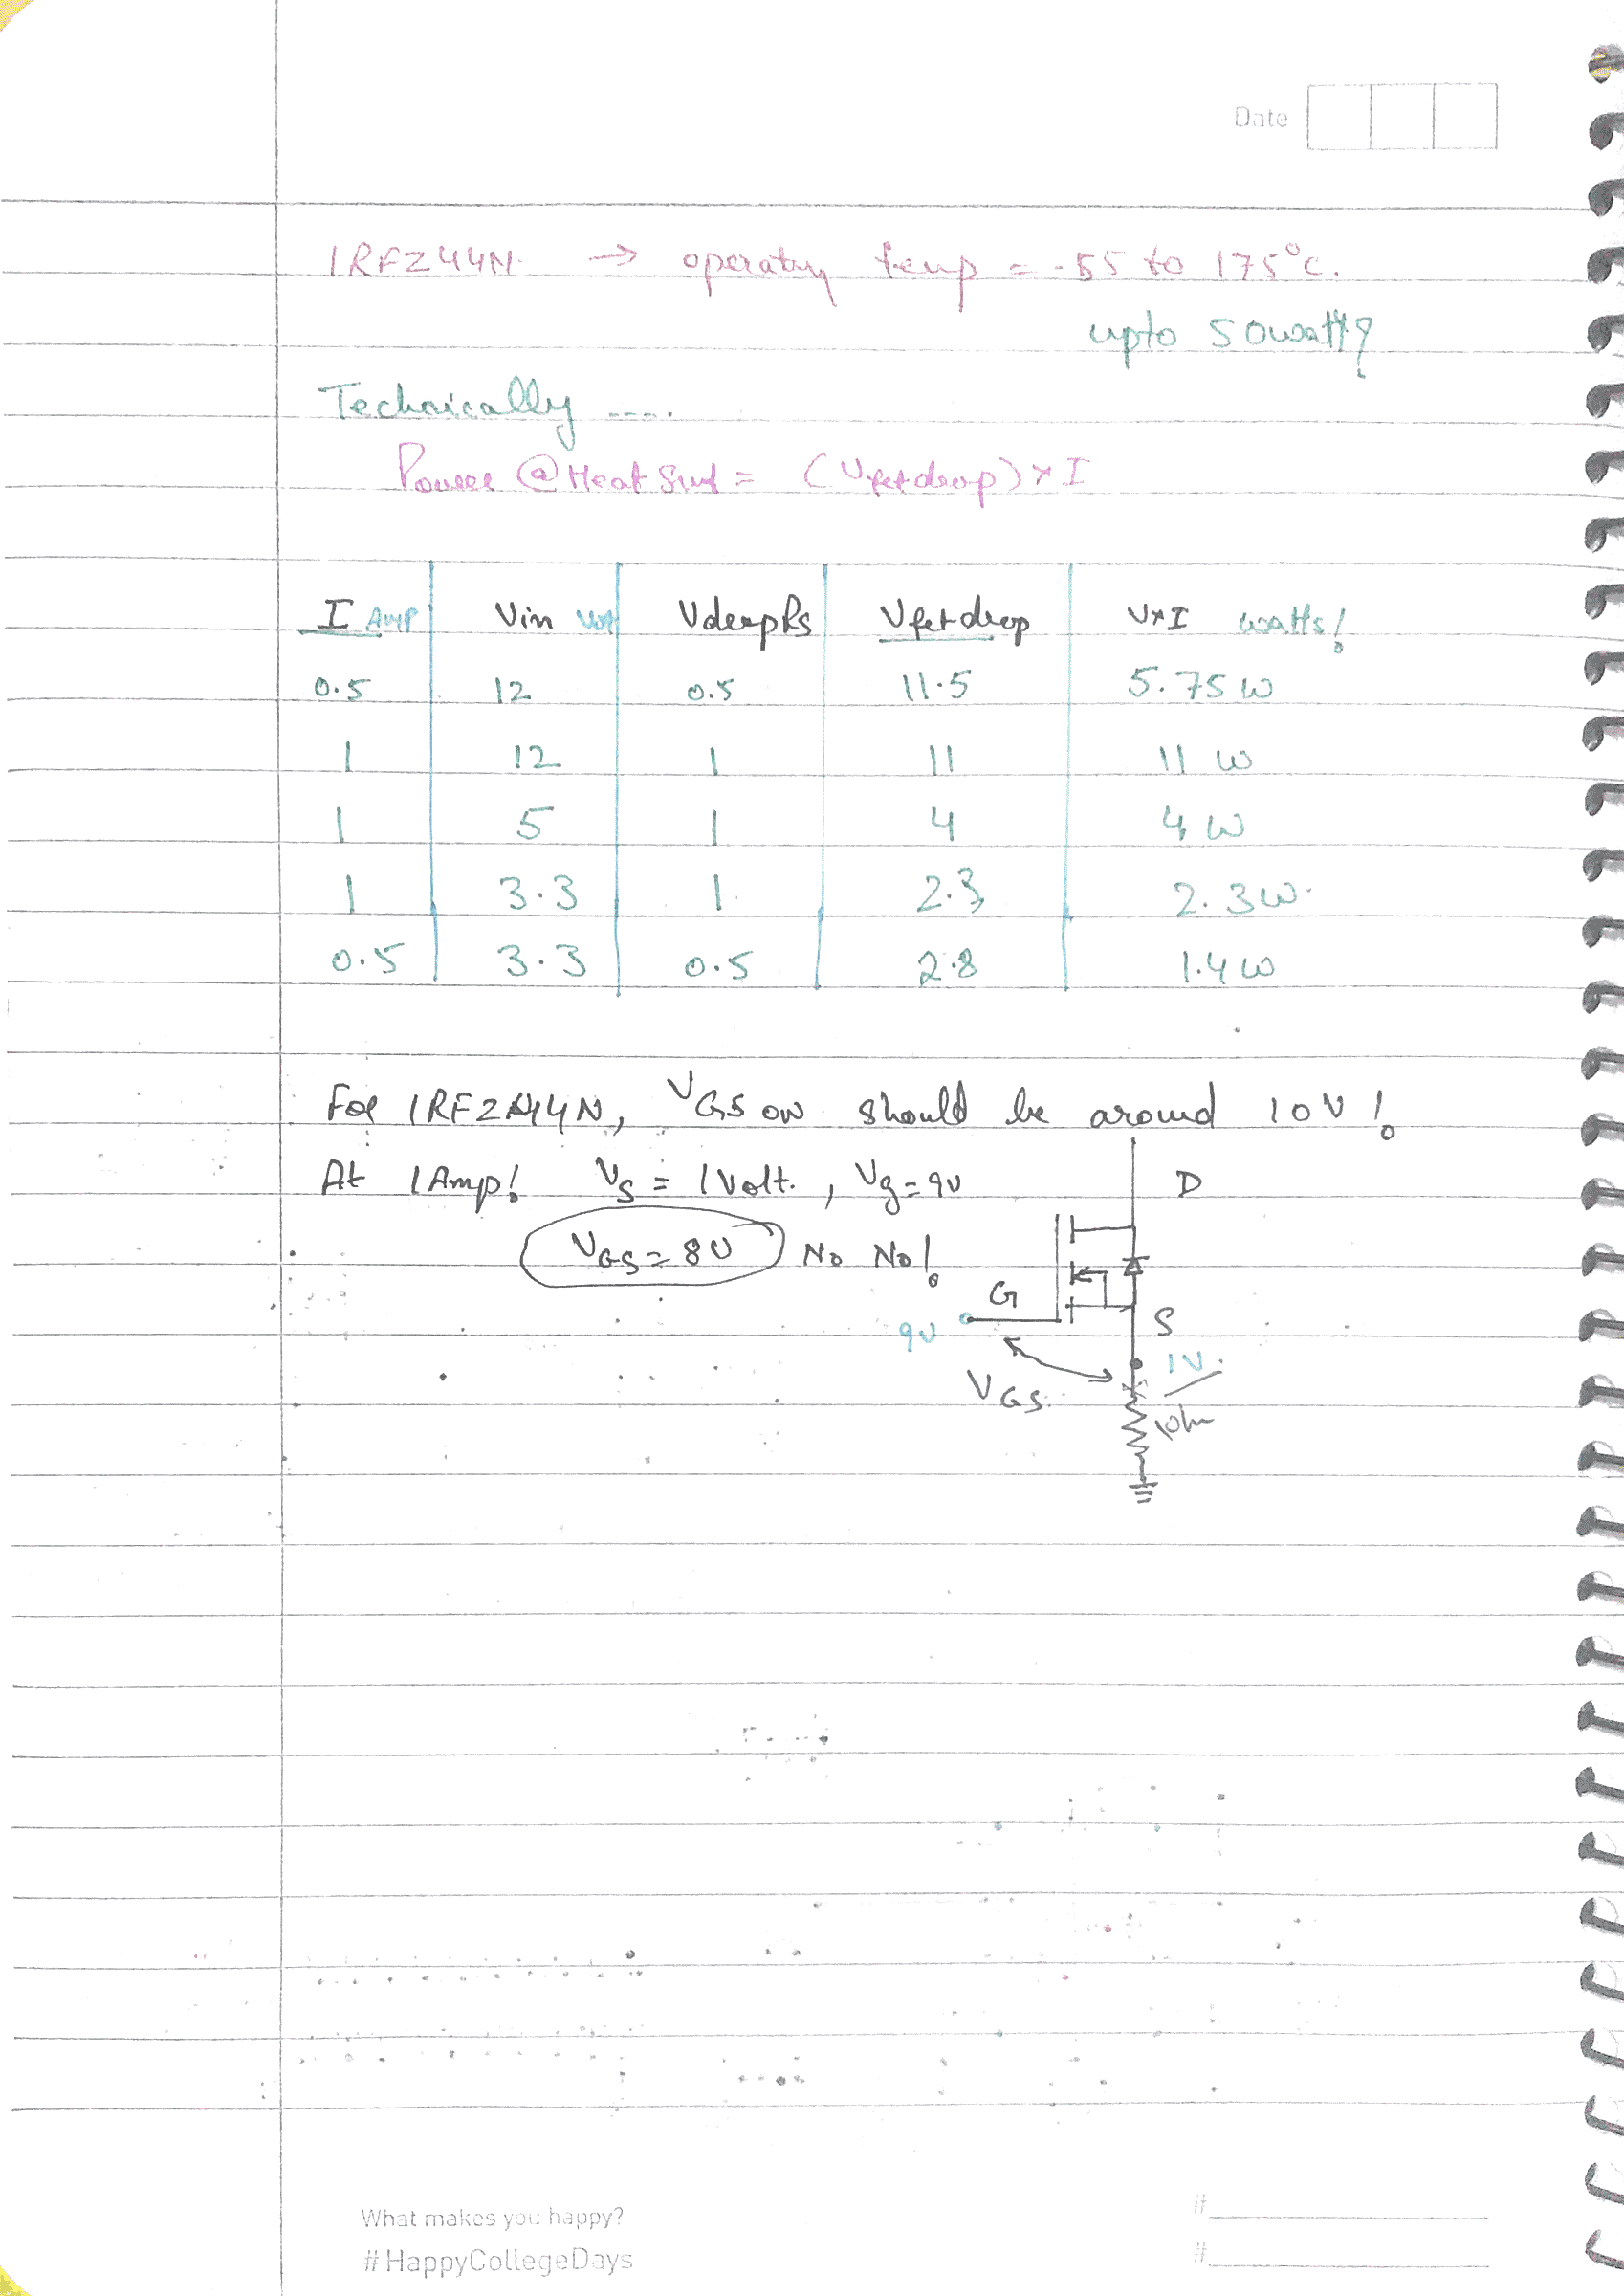 Date
IRFZ44N → operating temp = -55 to 175°C.
upto 50watt?
Technically ----.
Power @ Heat Sink = (Vfetdrop) × I
I Amp Vin Volt VdropRs Vfetdrop V×I watts!
0.5 12 0.5 11.5 5.75 W
1 12 1 11 11 W
1 5 1 4 4 W
1 3.3 1 2.3 2.3 W.
0.5 3.3 0.5 2.8 1.4 W
For IRFZ44N, VGS on should be around 10V!
At 1Amp! Vs = 1Volt. , Vg = 9V
D
VGS = 8V No No!
G
9V
S
1V.
VGS
1ohm
What makes you happy?
#HappyCollegeDays
#
#